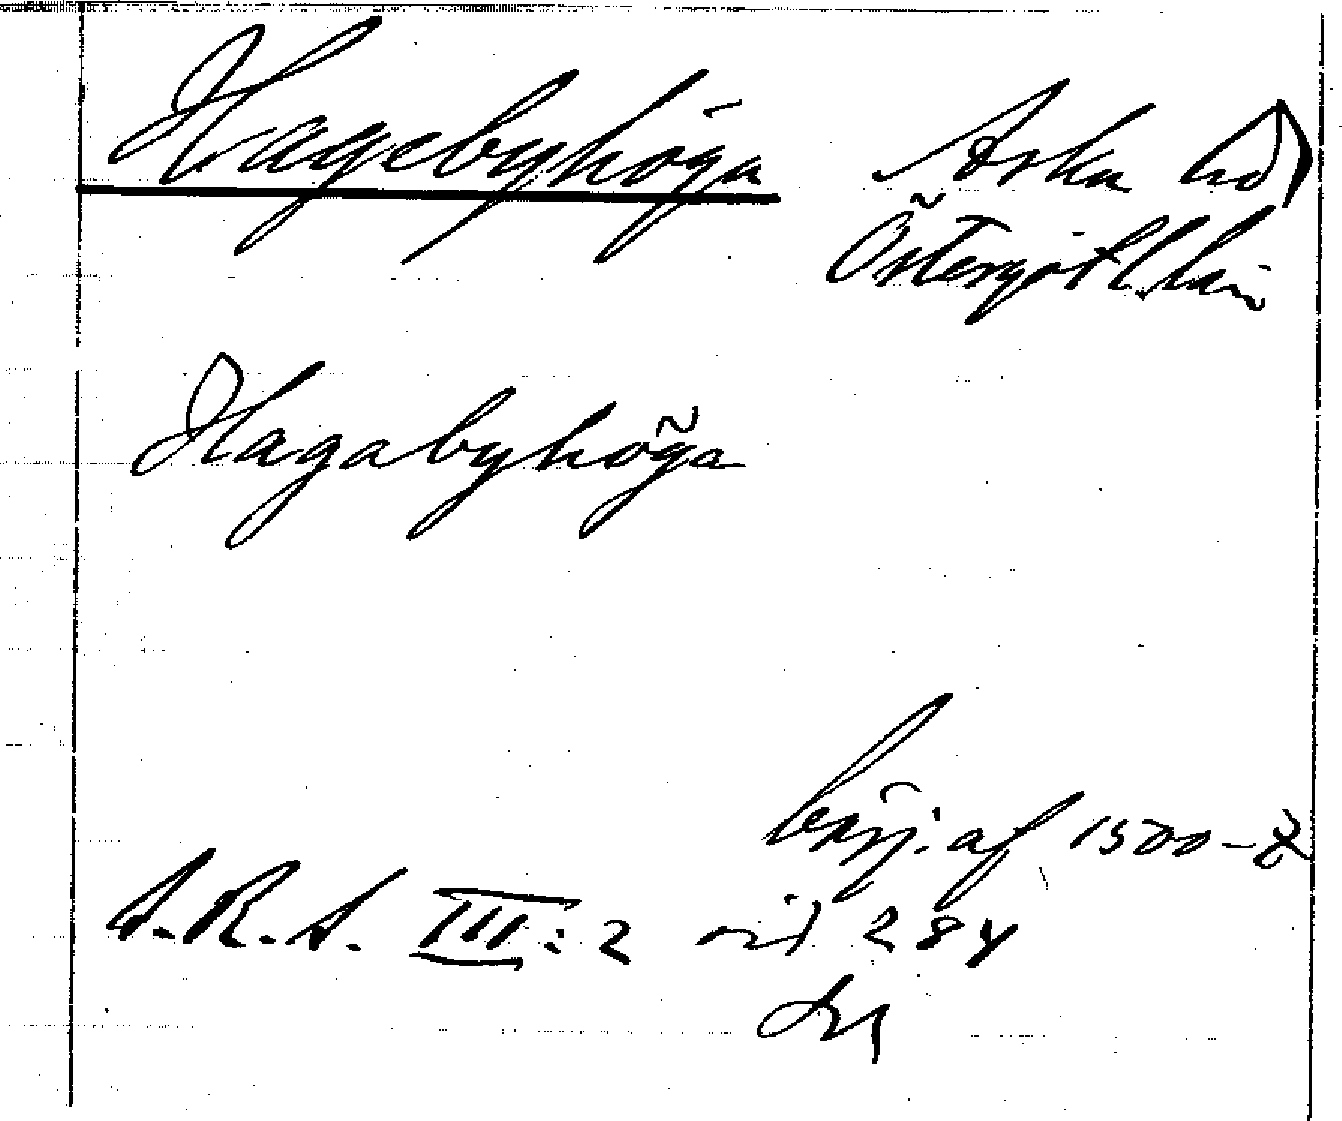 Hagebyhöga Aska hd
Östergötl. län
Hagabyhöga
börj. af 1500-t
A.R.A. III:2 sid 284